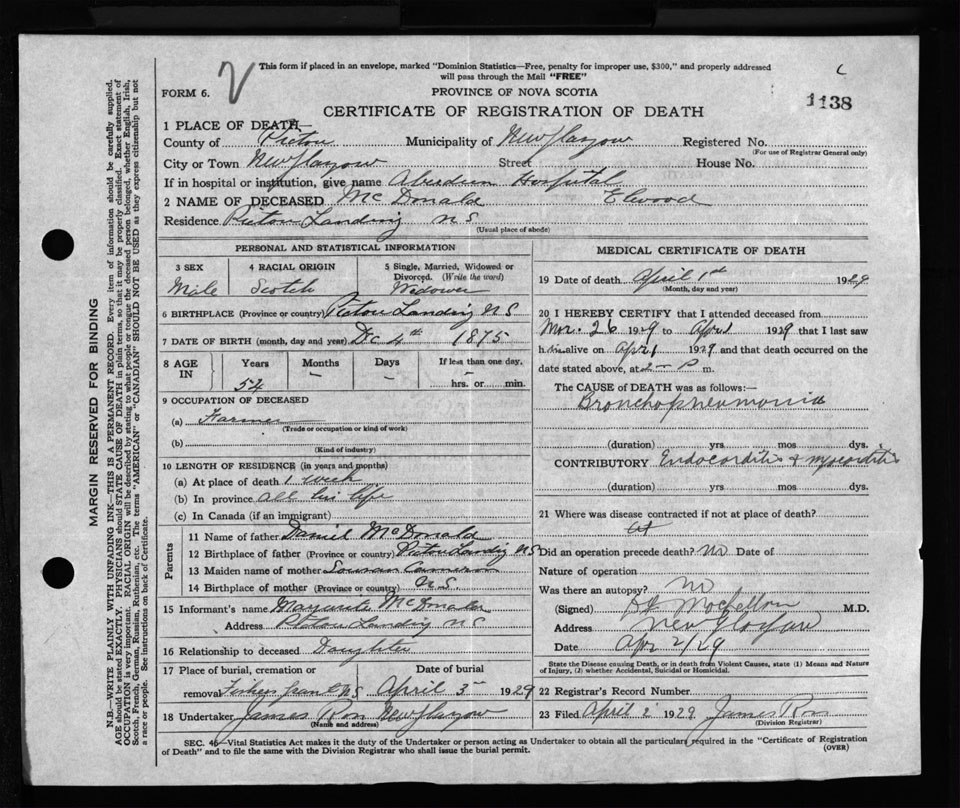 This form if placed in an envelope, marked "Dominion Statistics—Free, penalty for improper use, $300," and properly addressed
will pass through the Mail "FREE"
FORM 6.
PROVINCE OF NOVA SCOTIA
1138
CERTIFICATE OF REGISTRATION OF DEATH
1 PLACE OF DEATH—
County of Pictou Municipality of New Glasgow Registered No.
(For use of Registrar General only)
City or Town New Glasgow Street House No.
If in hospital or institution, give name Aberdeen Hospital
2 NAME OF DECEASED McDonald Elwood
Residence Pictou Landing N S
(Usual place of abode)
PERSONAL AND STATISTICAL INFORMATION
3 SEX 4 RACIAL ORIGIN 5 Single, Married, Widowed or
Divorced. (Write the word)
Male Scotch Widower
6 BIRTHPLACE (Province or country) Pictou Landing N S
7 DATE OF BIRTH (month, day and year) Dec 4th 1875
8 AGE IN Years Months Days If less than one day,
54 – – hrs. or min.
9 OCCUPATION OF DECEASED
(a) Farmer
(Trade or occupation or kind of work)
(b)
(Kind of industry)
10 LENGTH OF RESIDENCE (in years and months)
(a) At place of death 1 week
(b) In province all his life
(c) In Canada (if an immigrant)
Parents
11 Name of father Daniel McDonald
12 Birthplace of father (Province or country) Pictou Landing N S
13 Maiden name of mother Cameron
14 Birthplace of mother (Province or country) N.S.
15 Informant's name Marguerite McDonald
Address Pictou Landing N S
16 Relationship to deceased Daughter
17 Place of burial, cremation or Date of burial
removal Fishers Grant N S April 3 1929
18 Undertaker James Ross New Glasgow
(Name and address)
MEDICAL CERTIFICATE OF DEATH
19 Date of death April 1st 1929
(Month, day and year)
20 I HEREBY CERTIFY that I attended deceased from
Mar. 26 1929 to April 1929 that I last saw
him alive on Apr 1 1929 and that death occurred on the
date stated above, at 2 – P m.
The CAUSE of DEATH was as follows:—
Bronchopneumonia
(duration) yrs mos dys.
CONTRIBUTORY Endocarditis & myocarditis
(duration) yrs. mos. dys.
21 Where was disease contracted if not at place of death?
at
Did an operation precede death? no Date of
Nature of operation
Was there an autopsy? no
(Signed) M.D.
Address New Glasgow
Date Apr 2/29
State the Disease causing Death, or in death from Violent Causes, state (1) Means and Nature
of Injury, (2) whether Accidental, Suicidal or Homicidal.
22 Registrar's Record Number
23 Filed April 2 1929 James Ross
(Division Registrar)
SEC. 46—Vital Statistics Act makes it the duty of the Undertaker or person acting as Undertaker to obtain all the particulars required in the "Certificate of Registration
of Death" and to file the same with the Division Registrar who shall issue the burial permit. (OVER)
MARGIN RESERVED FOR BINDING
N.B.—WRITE PLAINLY WITH UNFADING INK—THIS IS A PERMANENT RECORD. Every item of information should be carefully supplied.
AGE should be stated EXACTLY. PHYSICIANS should STATE CAUSE OF DEATH in plain terms, so that it may be properly classified. Exact statement of
OCCUPATION is very important. RACIAL ORIGIN will be described by stating to what people or tongue the deceased person belonged, whether English, Irish,
Scotch, French, German, Russian, Ruthenian, etc. The terms "AMERICAN" or "CANADIAN" SHOULD NOT BE USED as they express citizenship but not
a race or people. See instructions on back of Certificate.